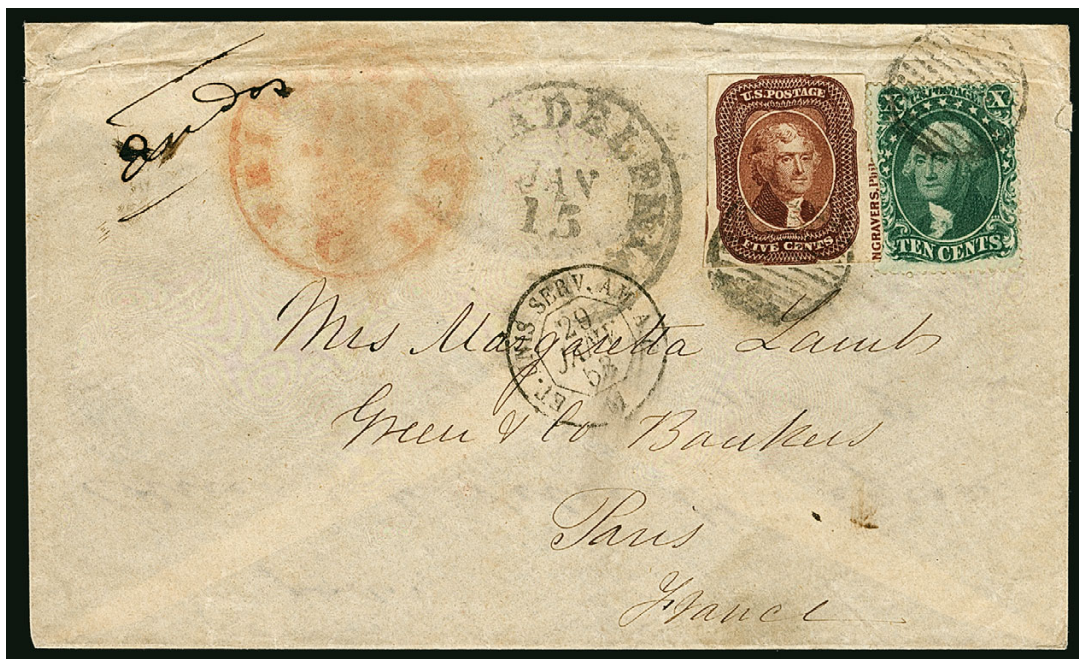 au dos
ADELPH
JAN
15
U.S. POSTAGE
FIVE CENTS
NGRAVERS, PHI
X U.S. POSTAGE X
TEN CENTS
ET. UNIS SERV. AM. A.
29
JANV
62
Mrs Margaretta Lamb
Green & Co Bankers
Paris
France